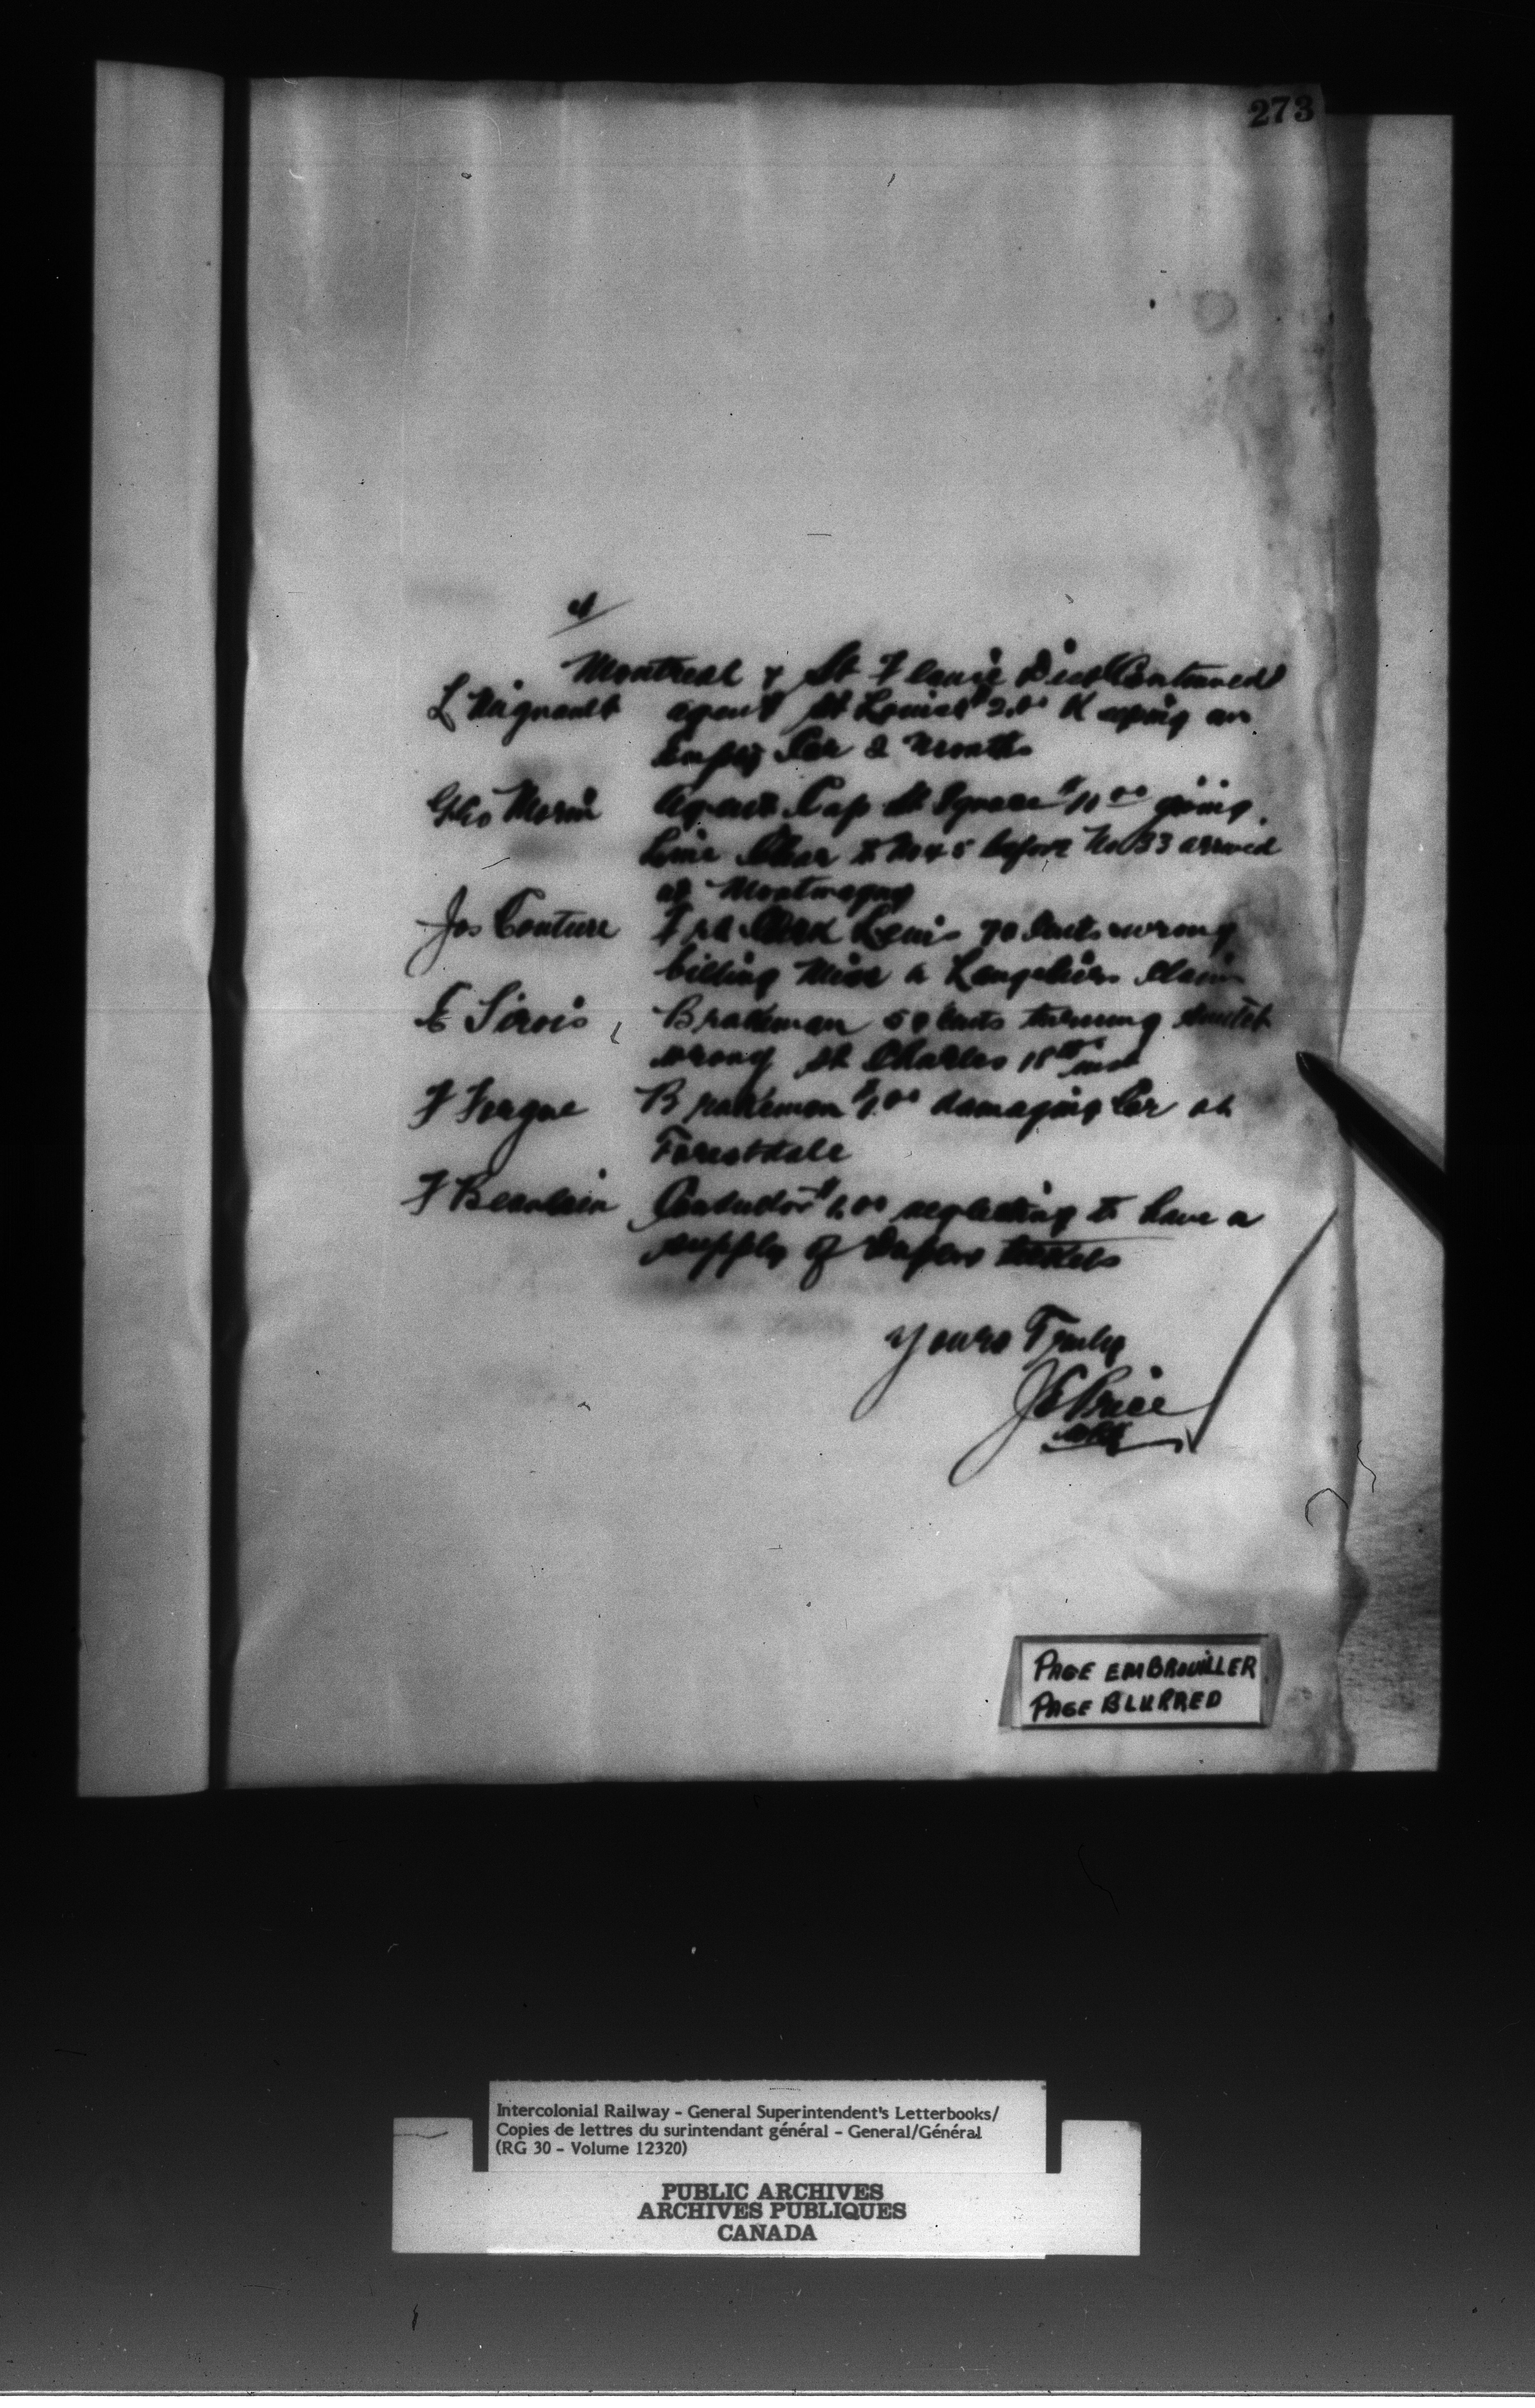 273
4
Montreal & St Flavie Dist Continued
L Vignault agent St Louise $2.00 Keeping an
Empty Car 2 months
Geo Morin Agent Cap St Ignace $10.00 giving
Line Clear to No 45 before No 33 arrived
at Montmagny
Jos Couture Frt Clerk Levis 70 Cents wrong
billing Miss A Langeliers claim
E Sirois Brakeman 50 Cents turning switch
wrong St Charles 18th inst
F Fergue Brakeman $1.00 damaging Car at
Forestdale
F Beaulieu Conductor $1.00 neglecting to have a
supply of tickets
Yours Truly
J E Price
PAGE EMBROUILLER
PAGE BLURRED
Intercolonial Railway - General Superintendent's Letterbooks/
Copies de lettres du surintendant général - General/Général
(RG 30 - Volume 12320)
PUBLIC ARCHIVES
ARCHIVES PUBLIQUES
CANADA